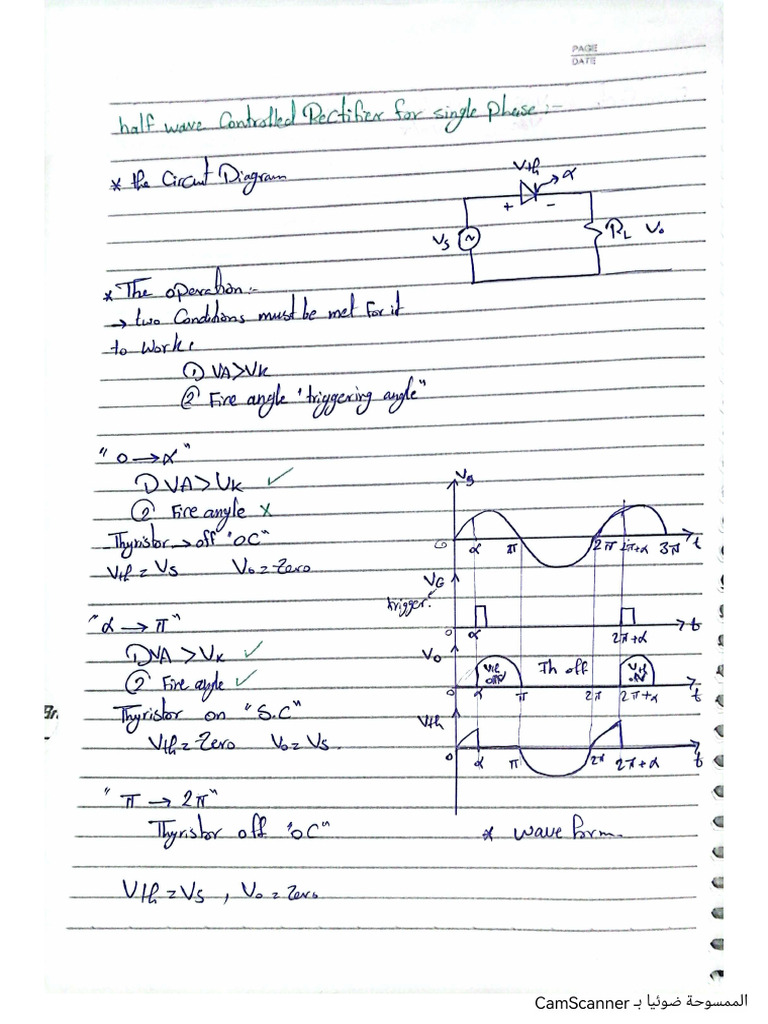 PAGE
DATE
half wave Controlled Rectifier for single phase:-
* the Circuit Diagram
Vth
α
+ -
Vs
~
RL Vo
* The operation:-
→ two Conditions must be met for it
to work:
① VA>VK
② Fire angle "triggering angle"
"0 → α"
① VA > VK ✓
② Fire angle x
Thyristor → off "OC"
Vth = Vs Vo = Zero
"α → π"
① VA > VK ✓
② Fire angle ✓
Thyristor on "S.C"
Vth = Zero Vo = Vs
"π → 2π"
Thyristor off "OC"
Vth = Vs , Vo = Zero
Vs
0 α π 2π 2π+α 3π t
VG
trigger
0 α 2π+α t
Vo
Th off
0 α π 2π 2π+α t
Vth
0 α π 2π 2π+α t
* wave form
الممسوحة ضوئيا بـ CamScanner